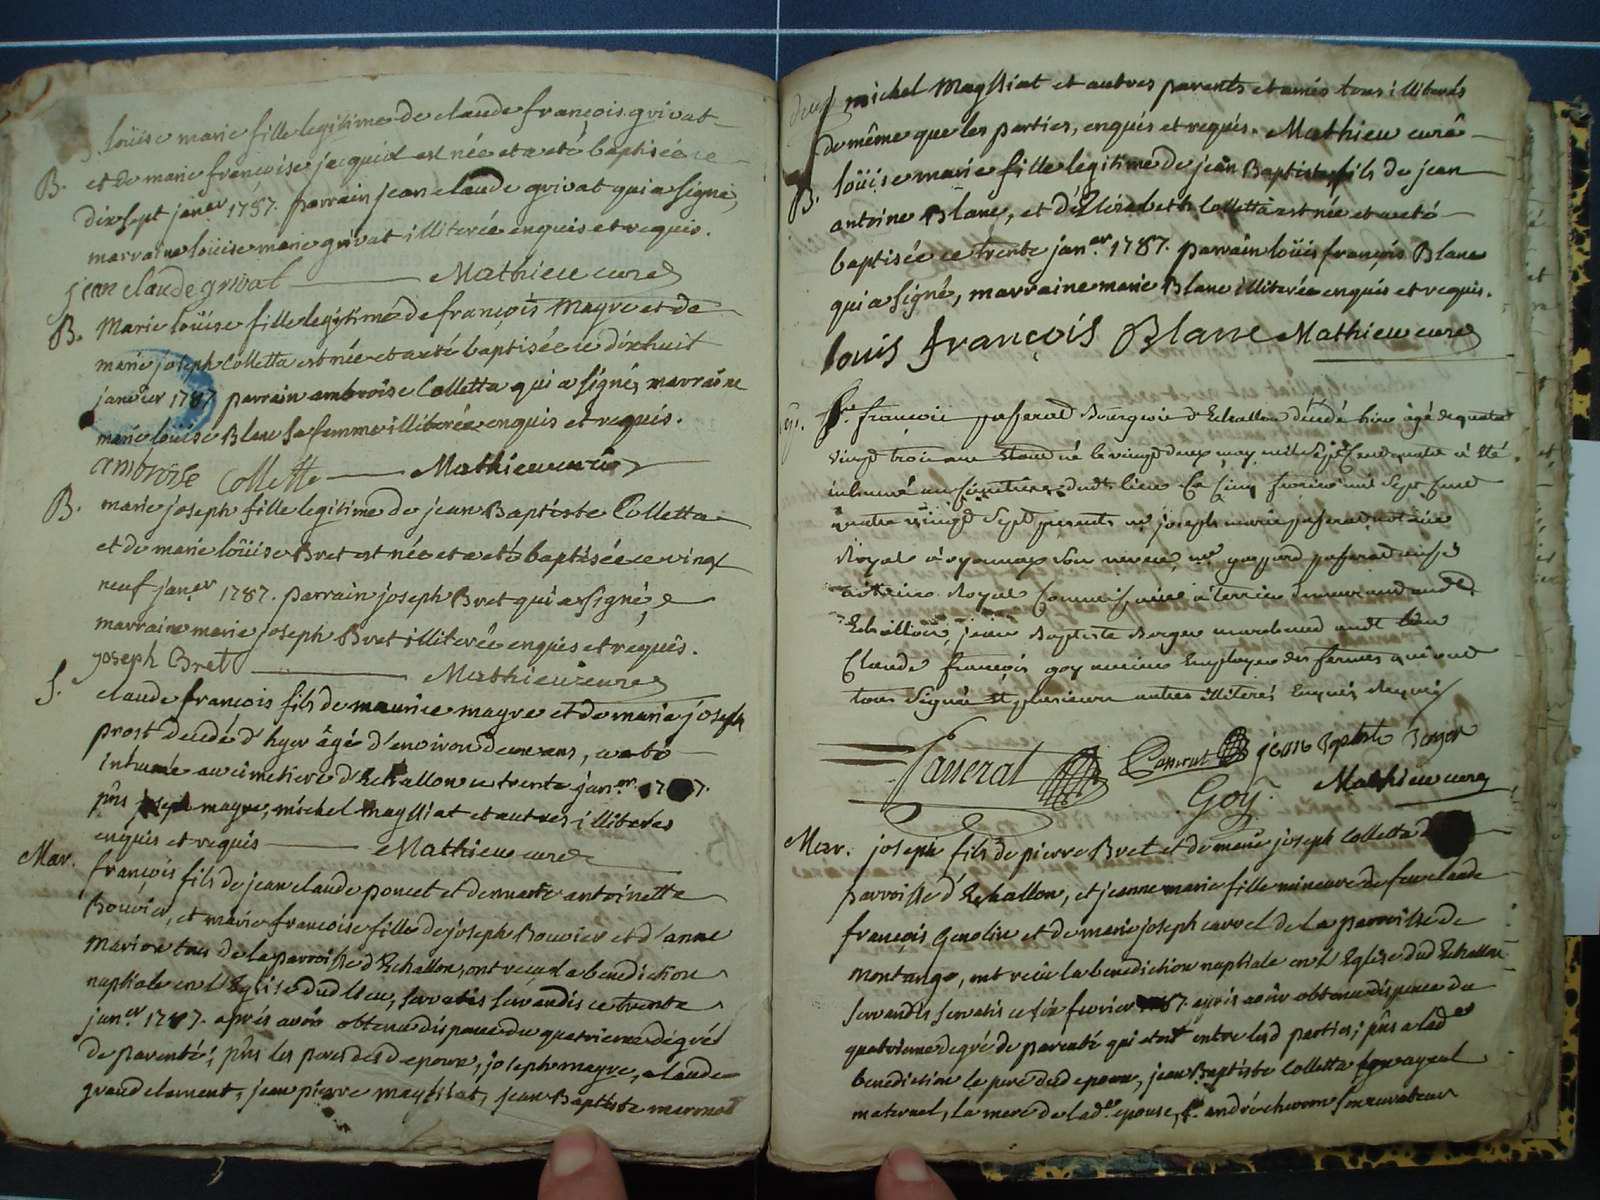 B. loüise marie fille legitime de claude françois grivat
et de marie françoise jacquiot est née et a eté baptisée ce
dix sept janer 1787. parrain jean claude grivat qui a signé,
marraine loüise marie grivat illiterée enquis et requis.
jean claude grivat Mathieu curé
B. Marie loüise fille legitime de françois Mayre et de
marie joseph Colletta est née et a eté baptisée ce dixhuit
janvier 1787 parrain ambroise Colletta qui a signé, marraine
marie loüise Blanc sa femme illiterée enquis et requis.
ambroise Colletta Mathieu curé
B. marie joseph fille legitime de jean Baptiste Colletta
et de marie loüise Bret est née et a eté baptisée ce vingt
neuf janer 1787. parrain joseph Bret qui a signé,
marraine marie joseph Bret illiterée enquis et requis.
joseph Bret Mathieu curé
S. claude françois fils de maurice mayre et de marie joseph
prost decedé d'hyer âgé d'environ deux ans, a eté
inhumé au cimetiere d'Echallon ce trente janer 1787.
pñs joseph mayre, michel maylliat et autres illiterés
enquis et requis Mathieu curé
Mar. françois fils de jean claude poncet et de marie antoinette
Bouvier, et marie françoise fille de joseph Bouvier et d'anne
Marion tous de la parroisse d'Echallon, ont reçu la benediction
nuptiale en l'Eglise dud lieu, servatis servandis ce trente
janer 1787. après avoir obtenu dispense du quatrieme degré
de parenté; pñs les peres desd epoux, joseph mayre, claude
grandclement, jean pierre maylliat, jean Baptiste mermet
michel Maylliat et autres parents et amis tous illiterés
de même que les parties, enquis et requis. Mathieu curé
B. loüise marie fille legitime de jean Baptiste fils de jean
antoine Blanc, et d'Elizabeth Colletta est née et a eté
baptisée ce trente janer 1787. parrain loüis françois Blanc
qui a signé, marraine marie Blanc illiterée enquis et requis.
louis françois Blanc Mathieu curé
Sr françois passerat Bourgeois d'Echallon décédé hier âgé de quatre
vingt trois ans étant né le vingt deux may mil sept Cent quatre à été
inhumé au Cimetiere dudt lieu Le Cinq fevrier mil sept Cent
quatre vingt sept presents me joseph marie passerat notaire
Royal à oyonnax son neveu, me gaspard passerat aussi
notaire Royal Commissaire à terrier demeurant audt
Echallon, jean Baptiste Berger marchand audt lieu
Claude françois goy ancien Employé des fermes qui ont
tous signés et plusieurs autres illiterés Enquis Requis
Passerat Passerat jean Baptiste Berger
Goy Mathieu curé
Mar. joseph fils de pierre Bret et de marie joseph Colletta
parroisse d'Echallon, et jeanne marie fille mineure de feu claude
françois Genolin et de marie joseph carrel de la parroisse de
montange, ont reçu la benediction nuptiale en l'Eglise dud Echallon
servandis servatis ce six fevrier 1787. après avoir obtenu dispense du
quatrieme degré de parenté qui etoit entre lesd parties; pñs a lad
benediction le pere dud epoux, jean Baptiste Colletta son ayeul
maternel, la mere de lade epouse, Sr andré son curateur